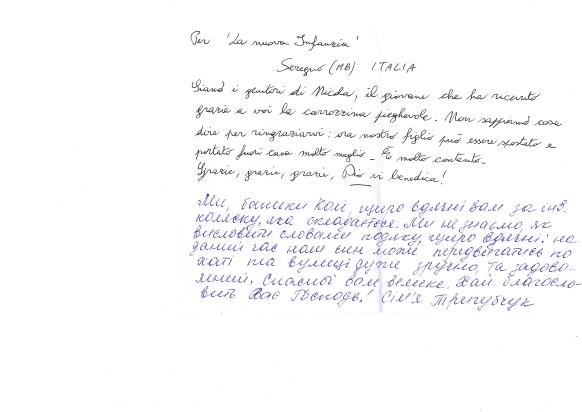 Per 'La nuova Infanzia'
Seregno (MB) ITALIA
Siamo i genitori di Nicola, il giovane che ha ricevuto
grazie a voi la carrozzina pieghevole. Non sappiamo cosa
dire per ringraziarvi: ora nostro figlio può essere spostato e
portato fuori casa molto meglio - È molto contento -
Grazie, grazie, grazie, Dio vi benedica!
Ми, батьки Колі, щиро вдячні вам за інв.
коляску, яка складається. Ми не знаємо, як
висловити словами подяку, щиро вдячні; на
даний час наш син може пересуватись по
хаті та вулиці дуже зручно, та задово-
лений. Спасибі вам велике. Хай благосло-
вить Вас Господь! Сім'я